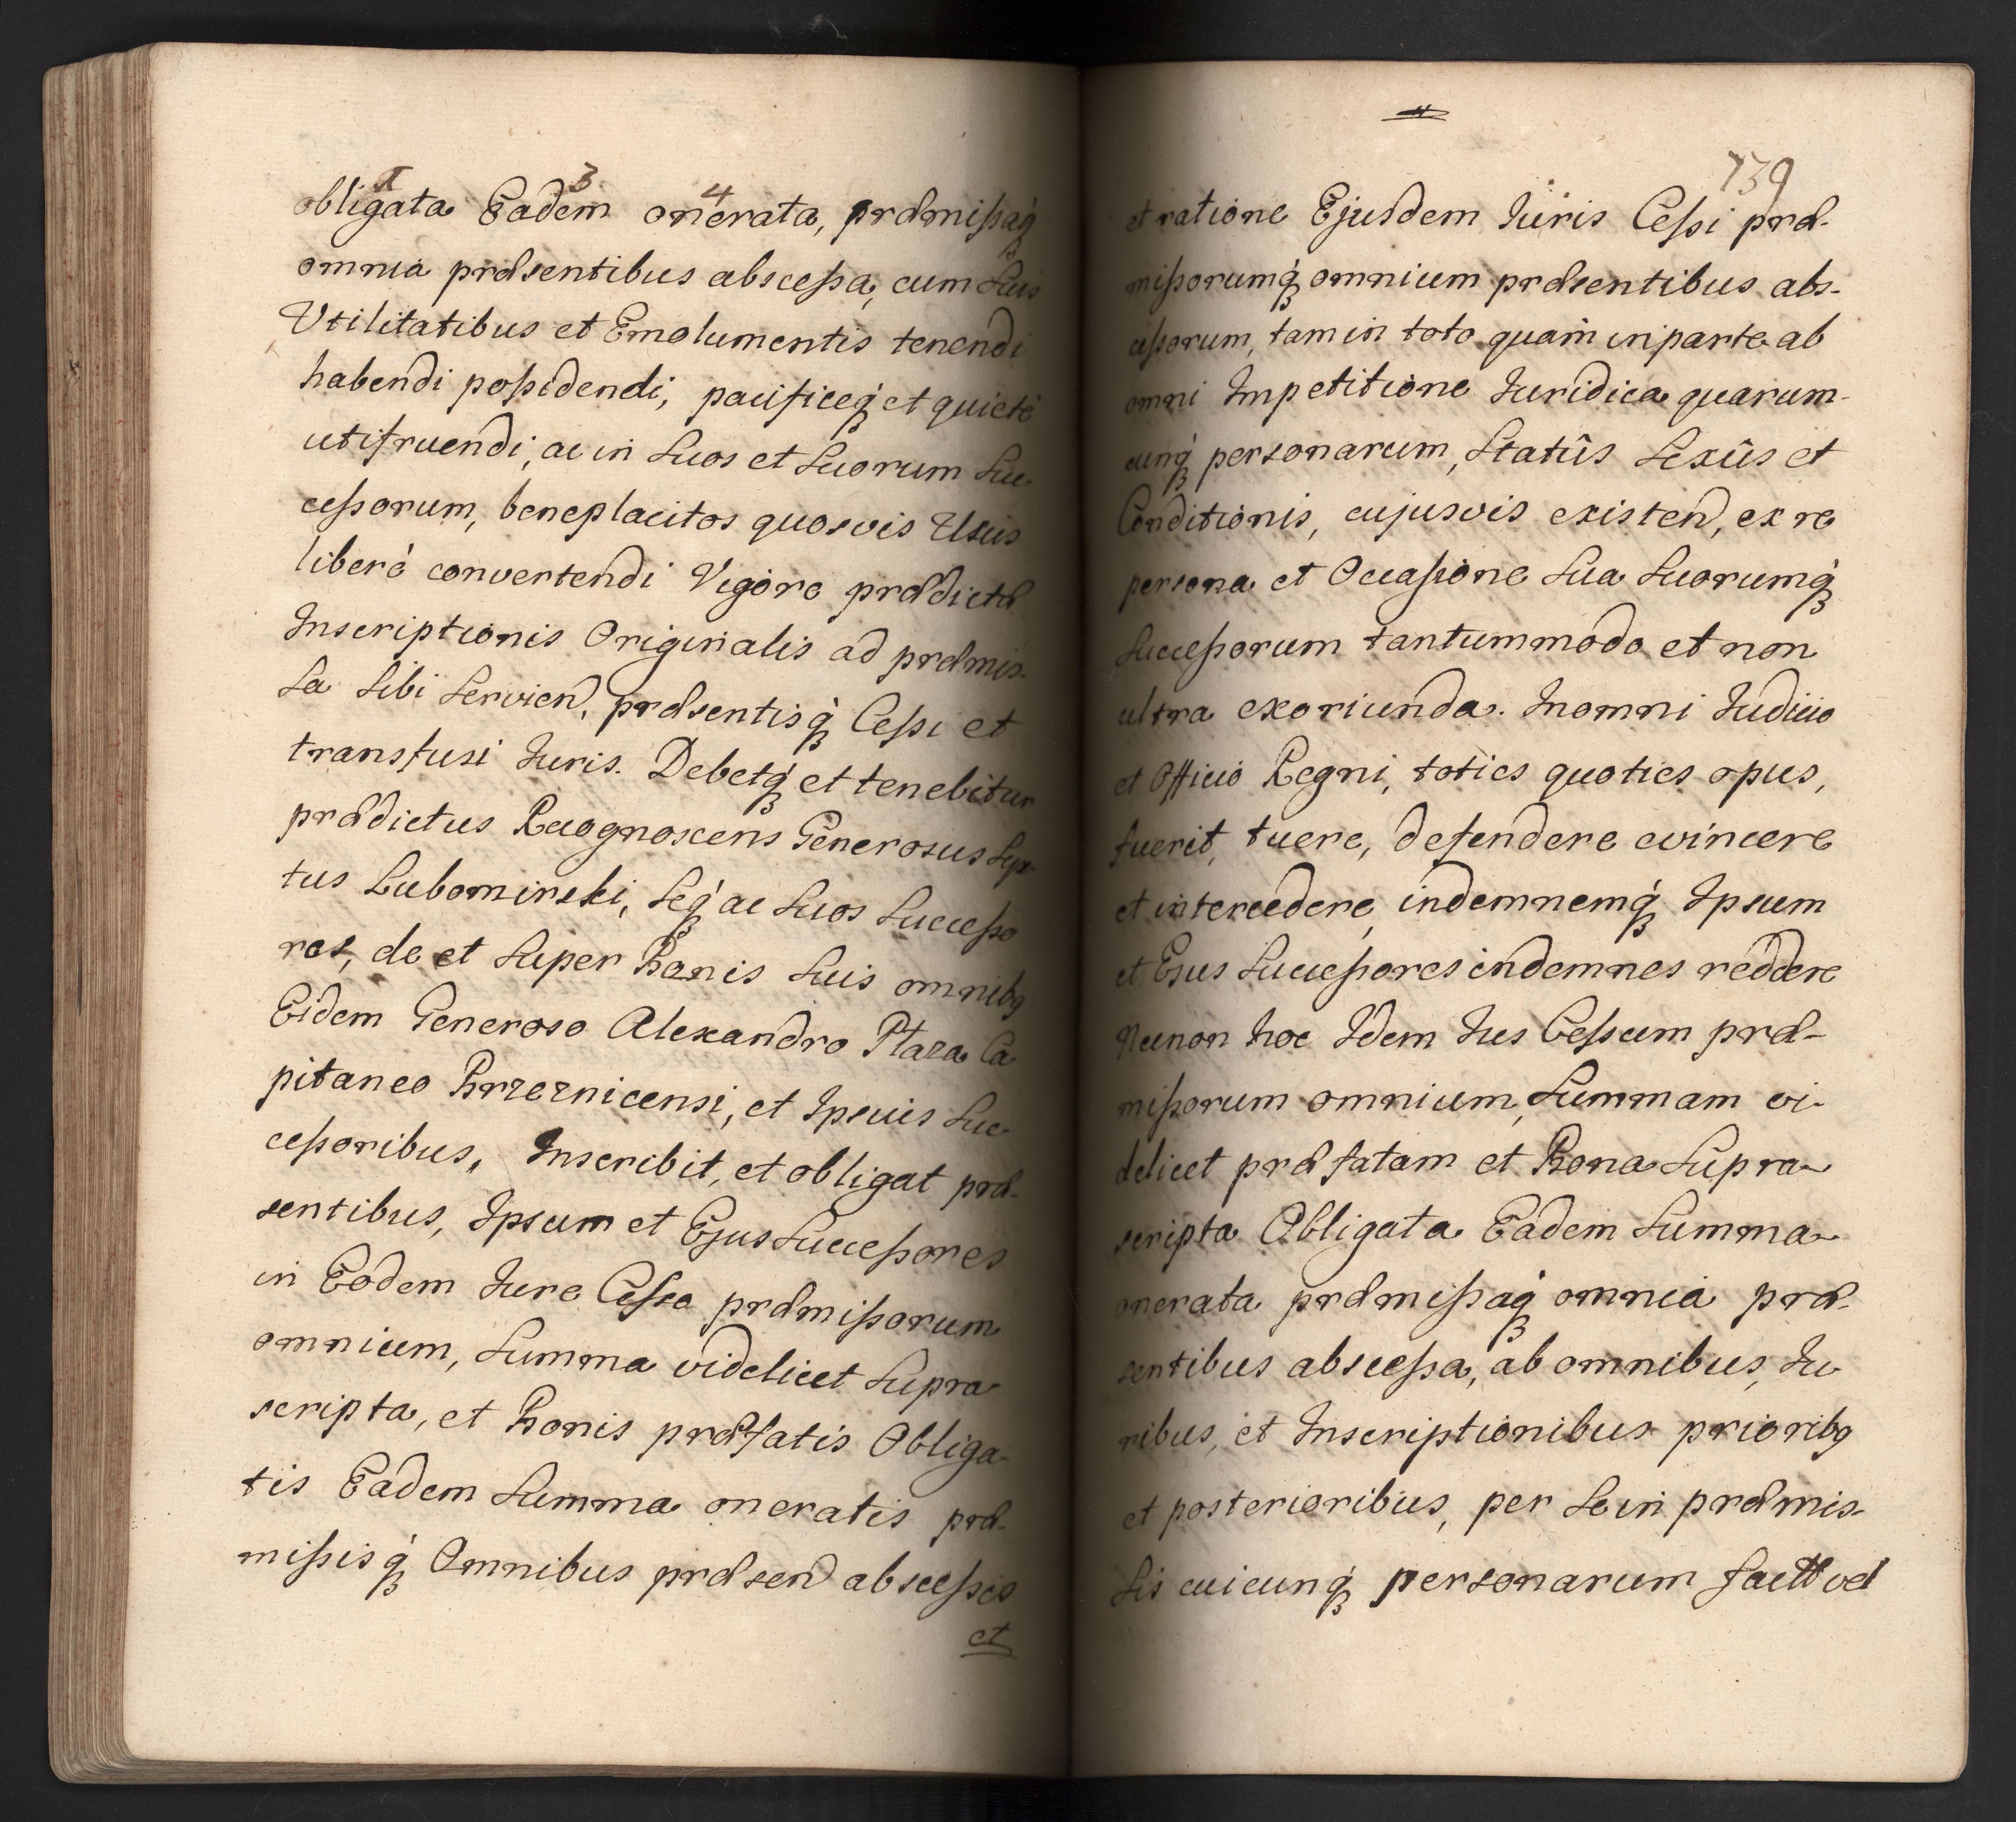 1 3 4
obligata Eadem onerata, præmissaq́ꝫ
omnia præsentibus abscessa, cum Suis
Utilitatibus et Emolumentis tenendi
habendi possidendi, pacificeq́ꝫ et quietè
utifruendi, ac in Suos et Suorum Suc-
cessorum, beneplacitos quosvis Usus
liberè convertendi Vigore prædictæ
Inscriptionis Originalis ad præmis-
sa Sibi Servien, præsentisq́ꝫ Cessi et
transfusi Juris. Debetq́ꝫ et tenebitur
prædictus Recognoscens Generosus
tus Lubomirski, Seq́ꝫ ac Suos Successo
res, de et Super Bonis Suis omnibꝫ
Eidem Generoso Alexandro Ptaza Ca
pitaneo Brzeznicensi, et Ipsius Suc-
cessoribus, Inscribit, et obligat præ-
sentibus, Ipsum et Ejus Successores
in Eodem Jure Cesso præmissorum
omnium, Summa videlicet Supra
scripta, et Bonis præfatis Obliga-
tis Eadem Summa oneratis præ-
missisq́ꝫ Omnibus præsen abscessis
et
739
et ratione Ejusdem Juris Cessi præ-
missorumq́ꝫ omnium præsentibus abs-
cessorum, tam in toto quam in parte ab
omni Impetitione Juridica quarum-
cunq́ꝫ personarum, Statûs Sexûs et
Conditionis, cujusvis existen, ex re
persona et Occasione Sua Suorumq́ꝫ
Successorum tantummodo et non
ultra exoriunda. In omni Judicio
et Officio Regni, toties quoties opus,
fuerit, tuere, defendere evincere
et intercedere, indemnemq́ꝫ Ipsum
et Ejus Successores indemnes reddere
Necnon hoc Idem Jus Cessum præ-
missorum omnium, Summam vi-
delicet præfatam et Bona Supra
scripta Obligata Eadem Summa
onerata præmissaq́ꝫ omnia præ-
sentibus abscessa, ab omnibus, Ju
ribus, et Inscriptionibus prioribꝫ
et posterioribus, per Se in præmis-
sis cuicunq́ꝫ personarum fact vel